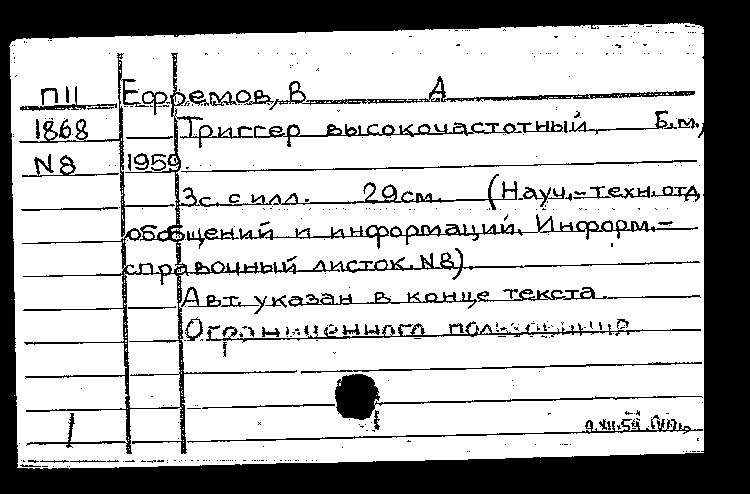 П11 Ефремов, В А
1868 Триггер высокочастотный, Б.м.,
N8 1959.
3с. с илл. 29см. (Науч.-техн. отд.
обобщений и информаций. Информ.-
справочный листок. N8).
Авт. указан в конце текста.
Ограниченного пользования
1 9.XII.59